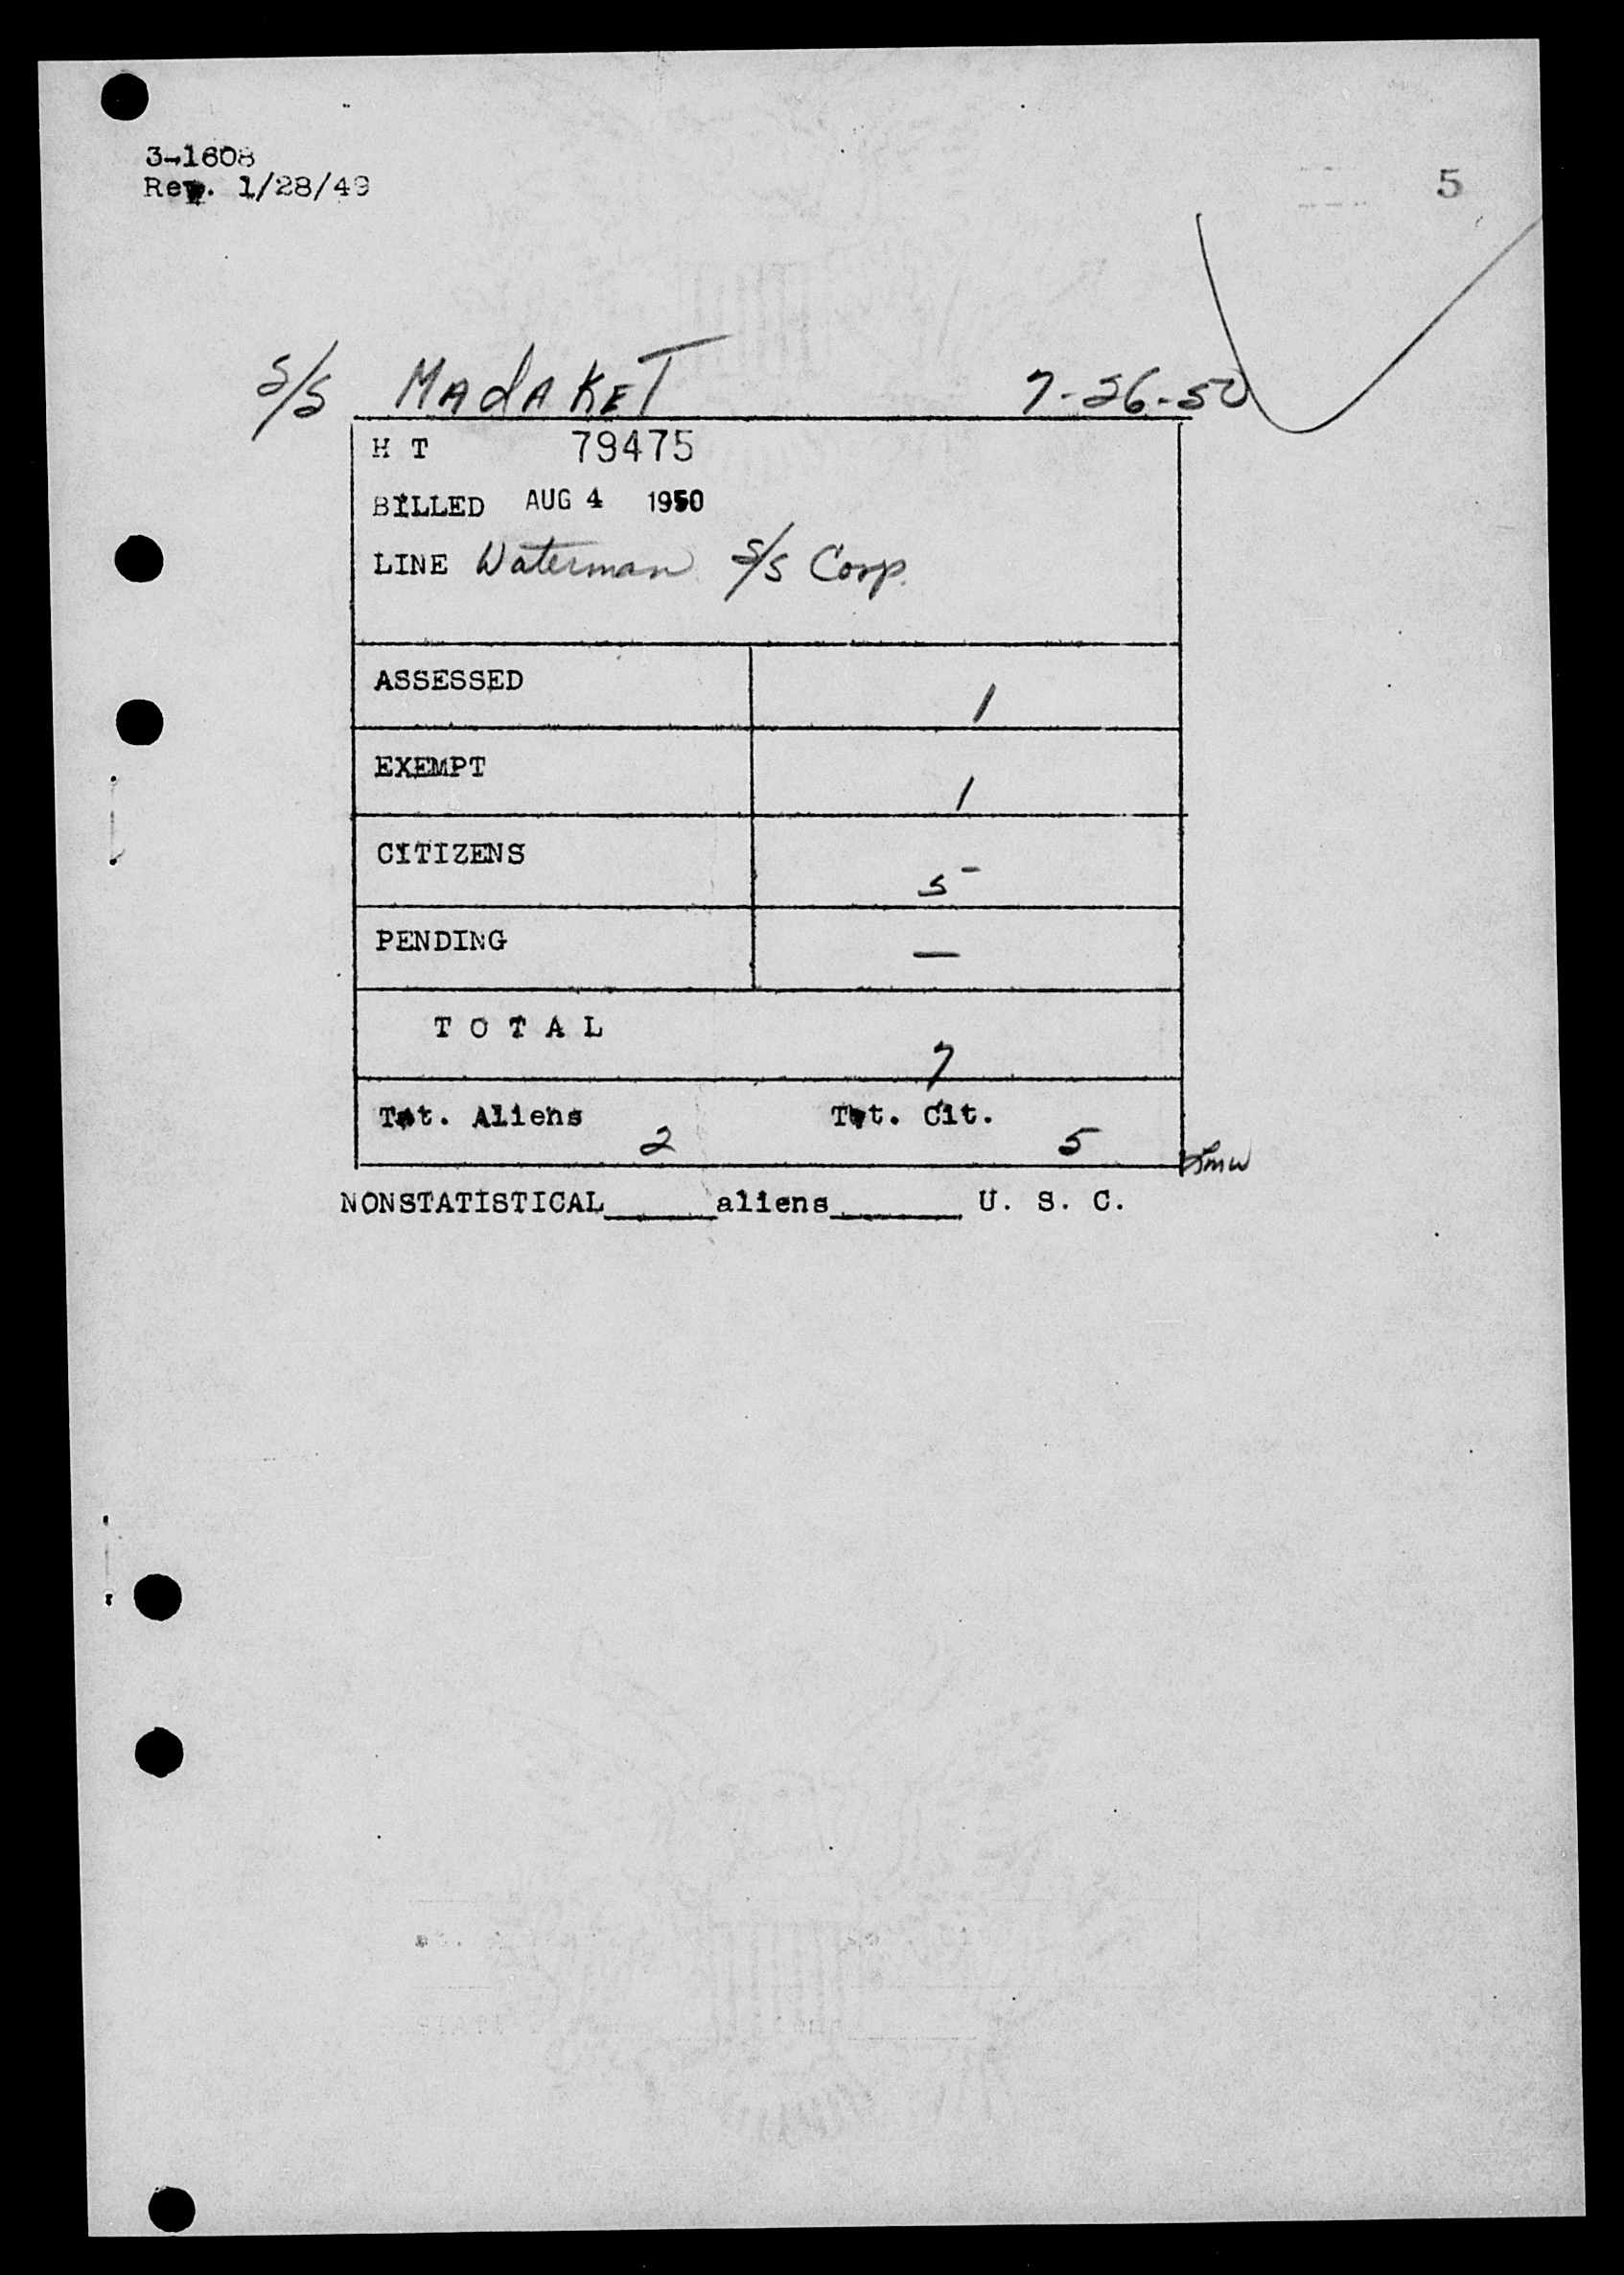 3-1608
Rev. 1/28/49
5
S/S MAdAKET 7-26-50
H T 79475
BILLED AUG 4 1950
LINE Waterman S/S Corp.
ASSESSED 1
EXEMPT 1
CITIZENS 5
PENDING —
T O T A L 7
Tot. Aliens 2 Tot. Cit. 5
NONSTATISTICAL______aliens_______ U. S. C.